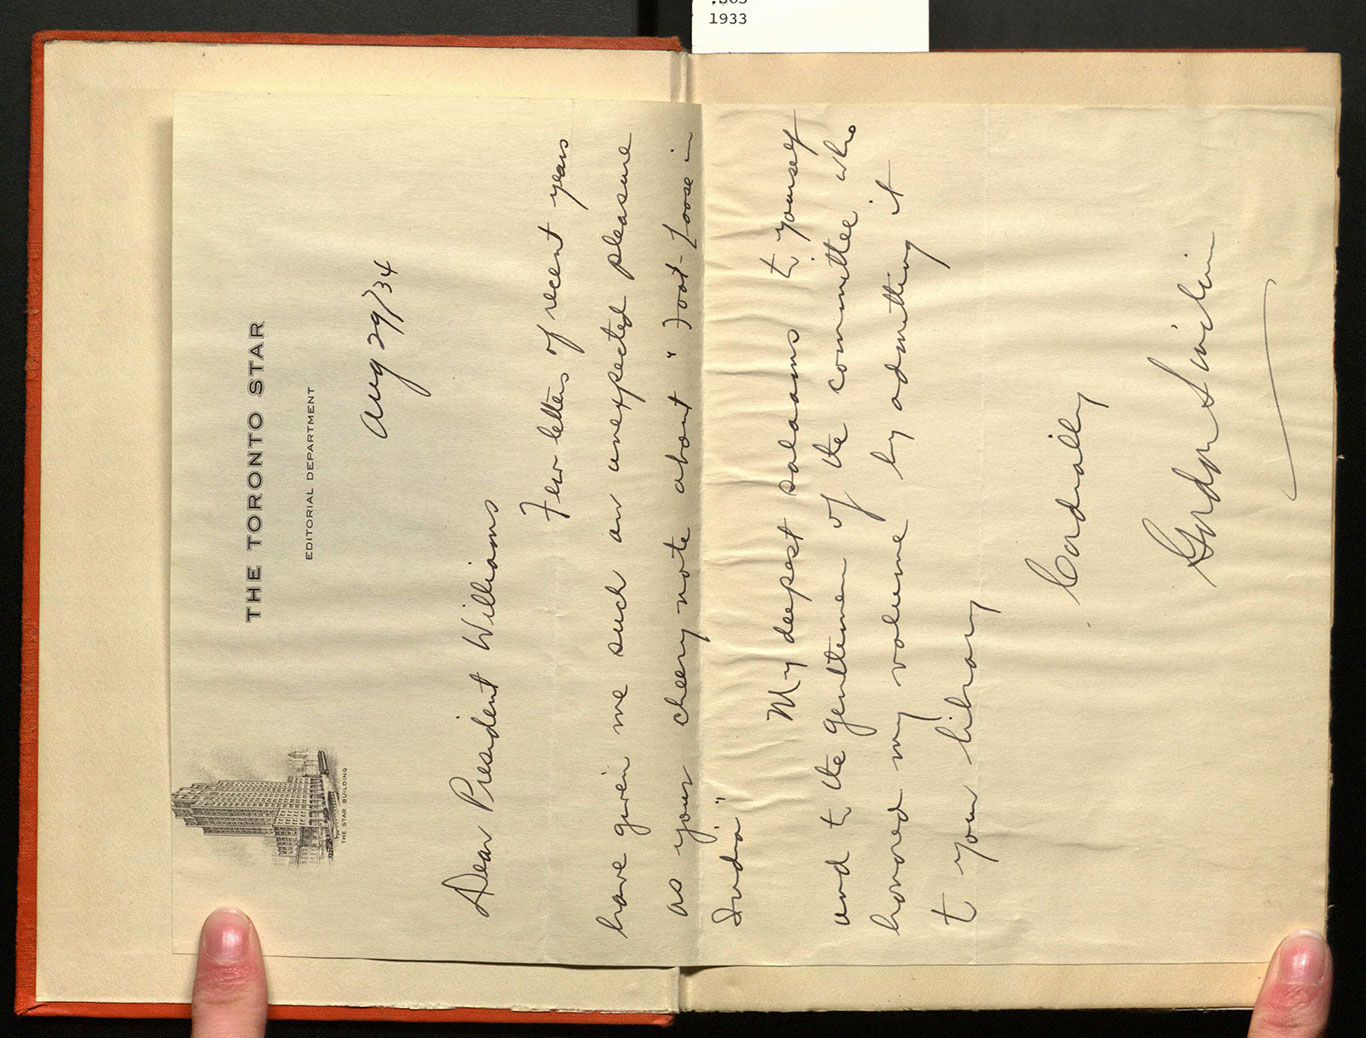 .863
1933
THE TORONTO STAR
EDITORIAL DEPARTMENT
THE STAR BUILDING
Aug 29/34
Dear President Williams
Few letters of recent years
have given me such an unexpected pleasure
as your cheery note about "Foot-loose in
India"
My deepest salaams to yourself
and to the gentlemen of the committee who
honored my volume by admitting it
to your library
Cordially
Gordon Sinclair